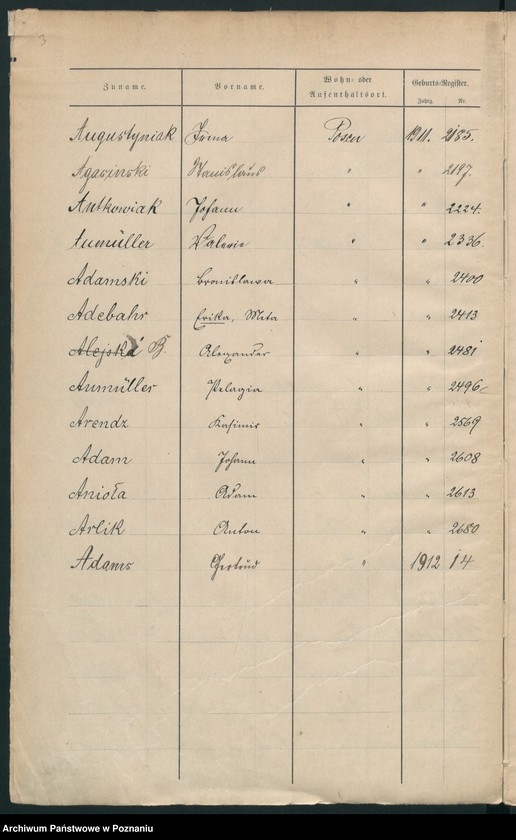 3
Zuname. Vorname. Wohn- oder Aufenthaltsort. Geburts-Register.
Jahrg. Nr.
Augustyniak Irma Posen 1911. 2185.
Agasinski Stanislaus " " 2197.
Antkowiak Johann " " 2224.
Aumüller Valerie " " 2336
Adamski Bronislawa " " 2400
Adebahr Erika, Meta " " 2413
Alejski B. Alexander " " 2481
Aumüller Pelagia " " 2496
Arendz Kasimir " " 2569
Adam Johann " " 2608
Anioła Adam " " 2613
Arlik Anton " " 2680
Adams Gertrud " 1912 14
Archiwum Państwowe w Poznaniu